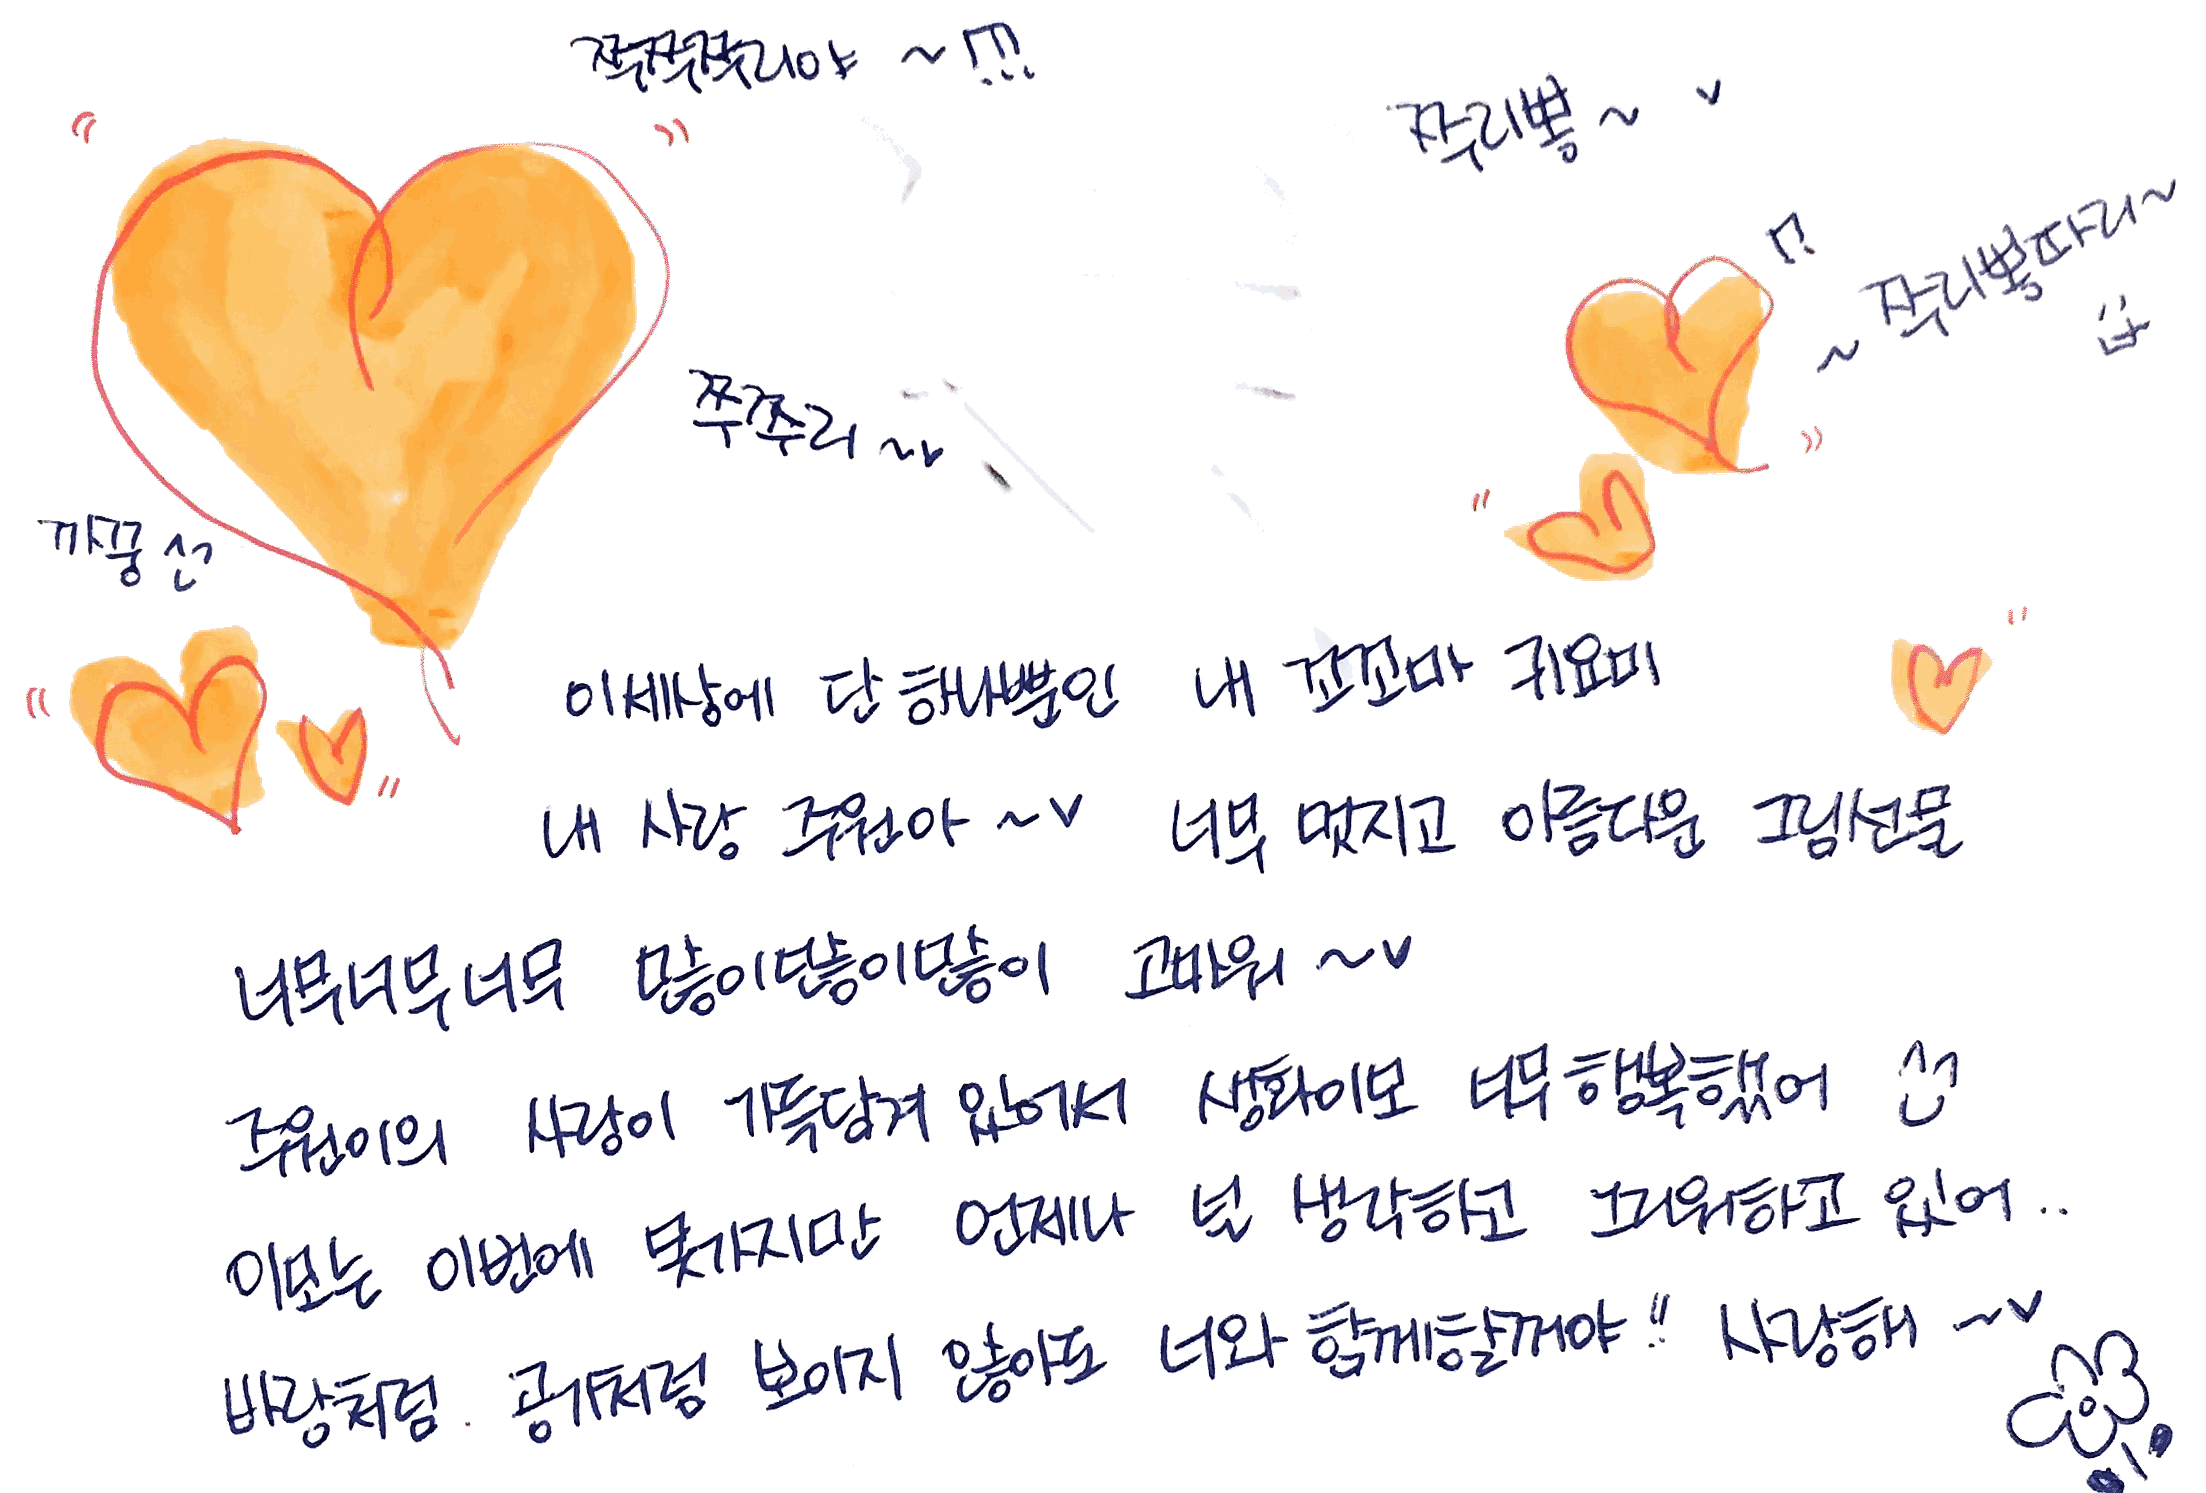 쭉쭉쭈리야 ~ !!!
쭈리뽕 ~
쭈리뽕따리 ~
쭈쭈리 ~
까꿍
이세상에 단 하나뿐인 내 꼬꼬마 귀요미
내 사랑 주원아 ~ 너무 멋지고 아름다운 그림선물
너무너무너무 많이많이많이 고마워 ~
주원이의 사랑이 가득담겨 있어서 생화이모 너무행복했어
이모는 이번에 못가지만 언제나 널 생각하고 그리워하고 있어..
바람처럼. 공기처럼 보이지 않아도 너와 함께할꺼야!! 사랑해 ~